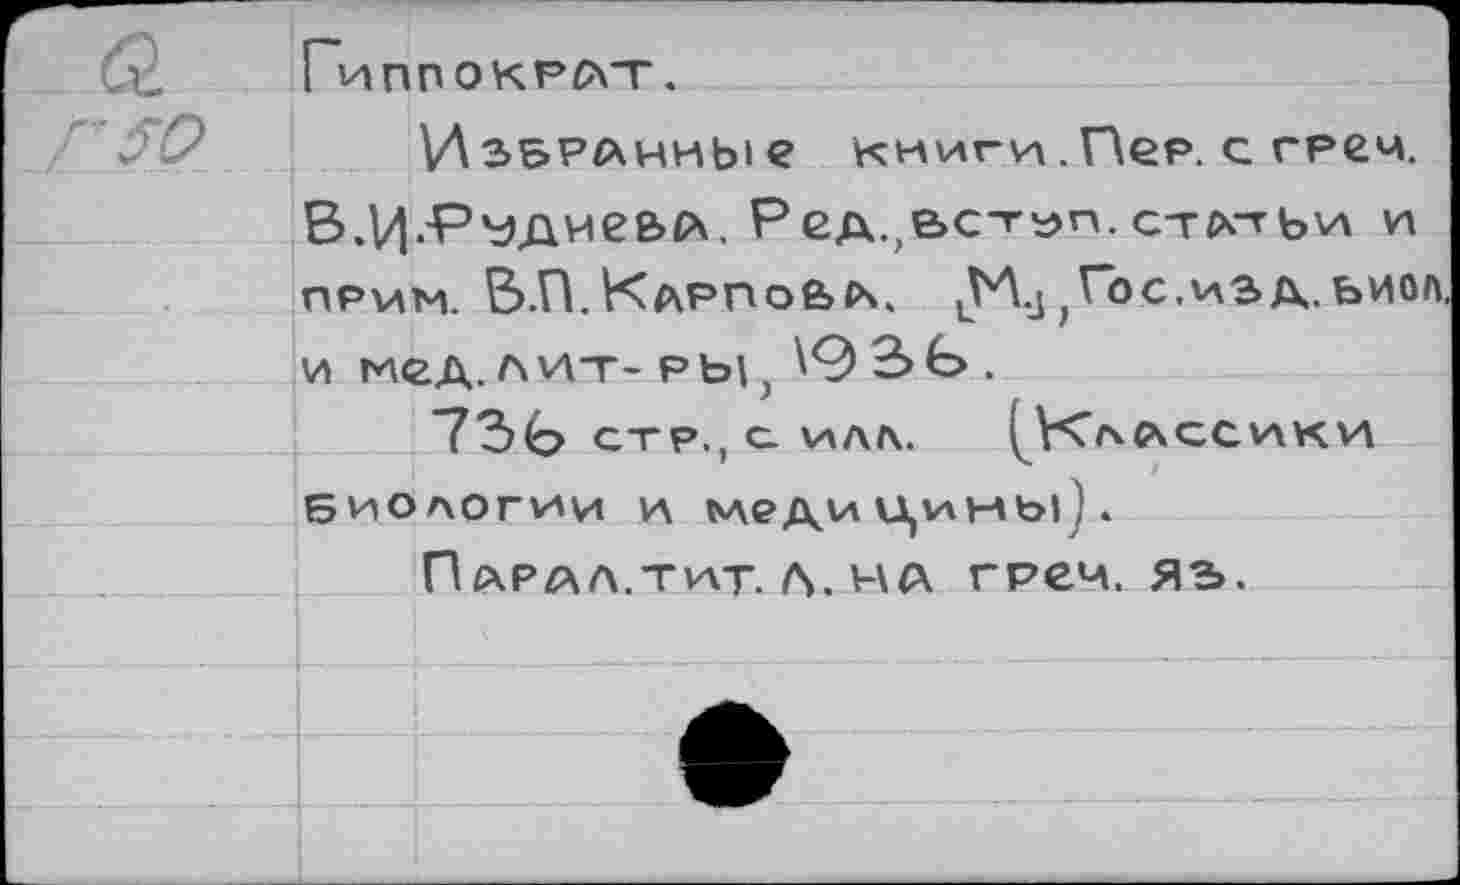 Q
Г50
Гиппократ.
Избранные книги. Пер. с греч.
В.И.Руднева. Ред., вступ. статьи и
прим. В.П. Карпова. [М.], Гос. изд. биол.
и мед. лит-ры, 1936.
736 стр., с илл. (Классики
биологии и медицины).
Парал. тит. л. на греч. яз.